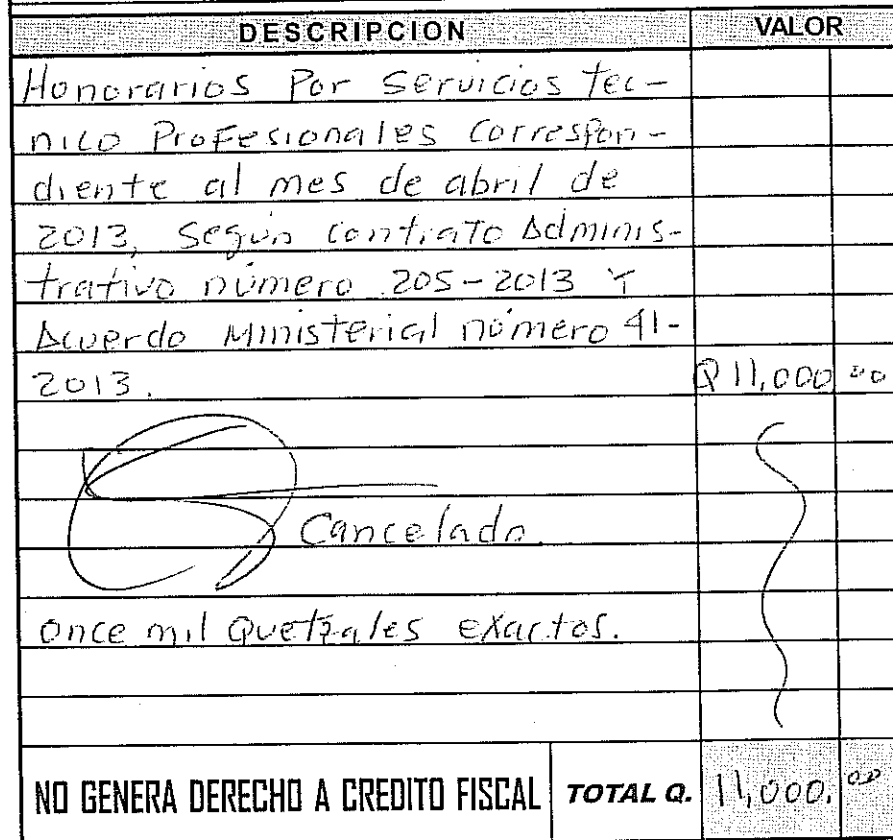 DESCRIPCION VALOR
Honorarios Por Servicios tec-
nico Profesionales Correspon-
diente al mes de abril de
2013, Según Contrato Adminis-
trativo número 205-2013 Y
Acuerdo Ministerial número 41-
2013. Q 11,000 00
Cancelado.
Once mil Quetzales exactos.
NO GENERA DERECHO A CREDITO FISCAL TOTAL Q. 11,000. 00